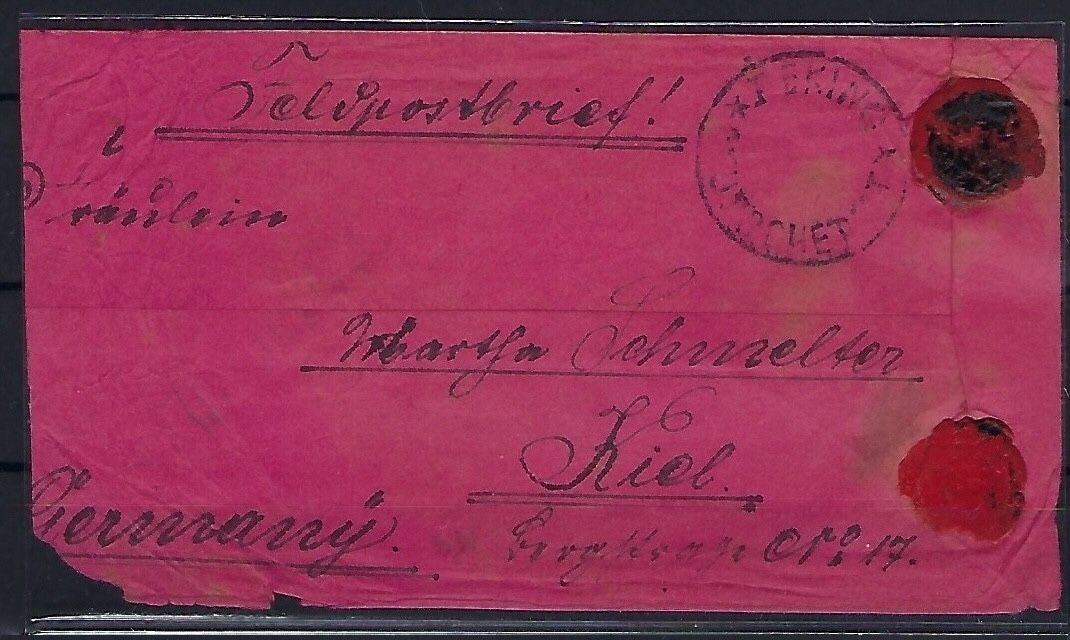 Feldpostbrief!
Fräulein
Martha Schmelter
Kiel.
Bergstraße No 17.
Germany.
PEKING